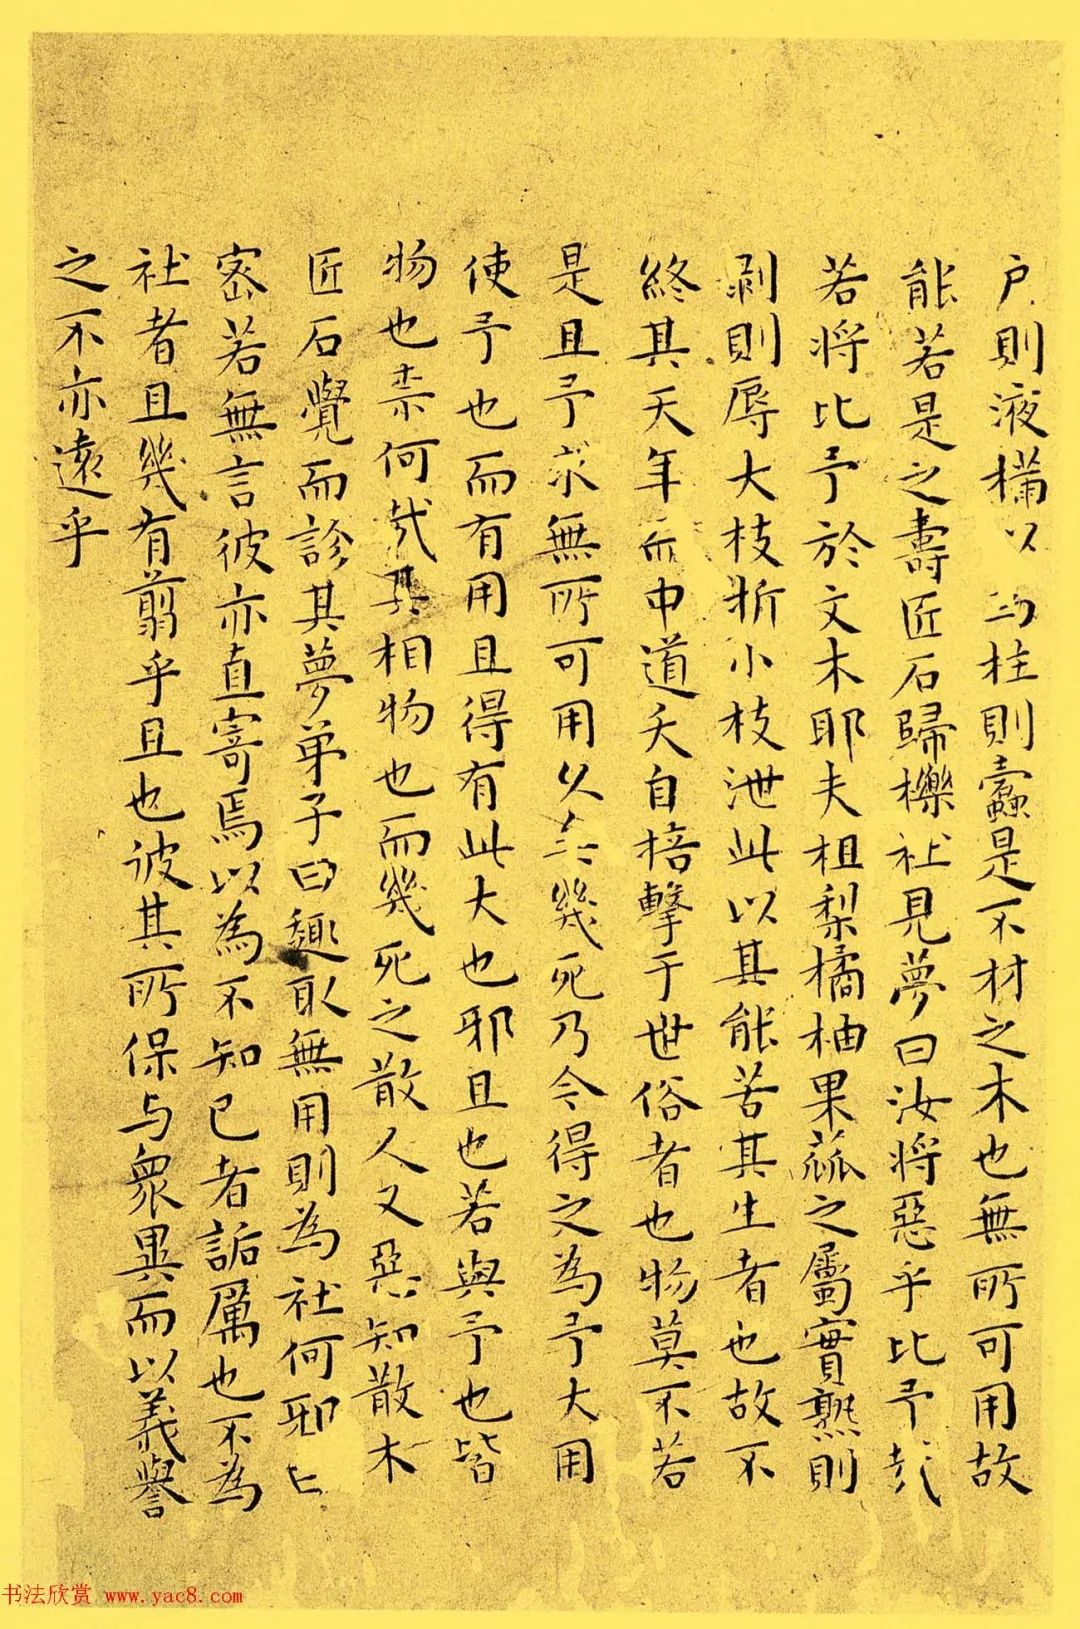 戶則液樠以為柱則蠹是不材之木也無所可用故
能若是之壽匠石歸櫟社見夢曰汝將惡乎比予哉
若將比予於文木耶夫柤梨橘柚果蓏之屬實熟則
剥則辱大枝折小枝泄此以其能苦其生者也故不
終其天年而中道夭自掊擊于世俗者也物莫不若
是且予求無所可用久矣幾死乃今得之為予大用
使予也而有用且得有此大也邪且也若與予也皆
物也柰何哉其相物也而幾死之散人又惡知散木
匠石覺而診其夢弟子曰趣取無用則為社何邪曰
密若無言彼亦直寄焉以為不知已者詬厲也不為
社者且幾有翦乎且也彼其所保与衆異而以義譽
之不亦遠乎
书法欣赏 www.yac8.com